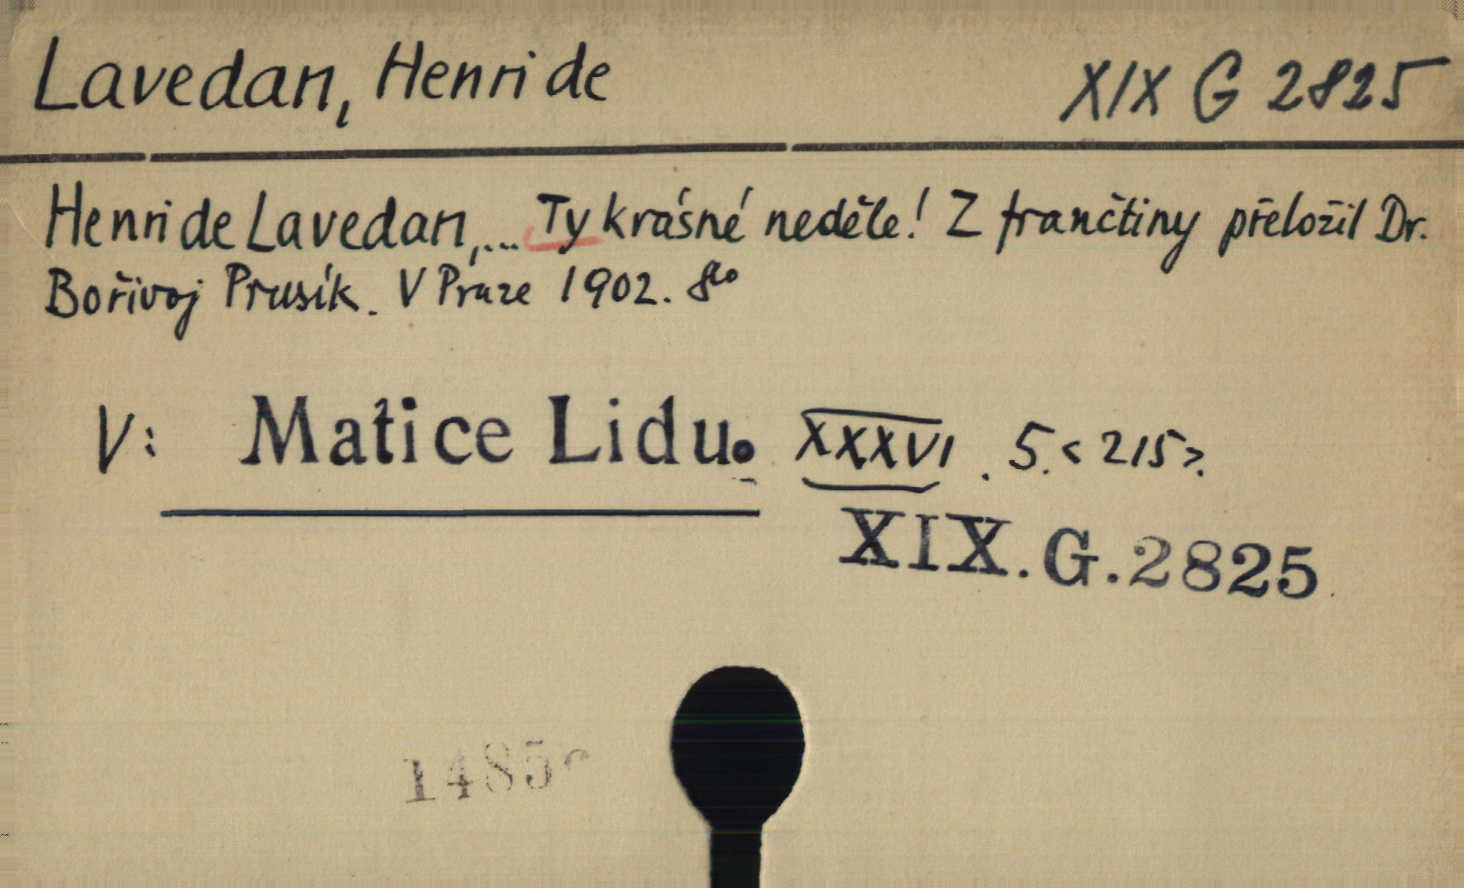 Lavedan, Henri de XIX G 2825
Henri de Lavedan,... Ty krásné neděle! Z frančtiny přeložil Dr.
Bořivoj Prusík. V Praze 1902. 8o
V: Matice Lidu. XXXVI. 5.<215>.
XIX.G.2825